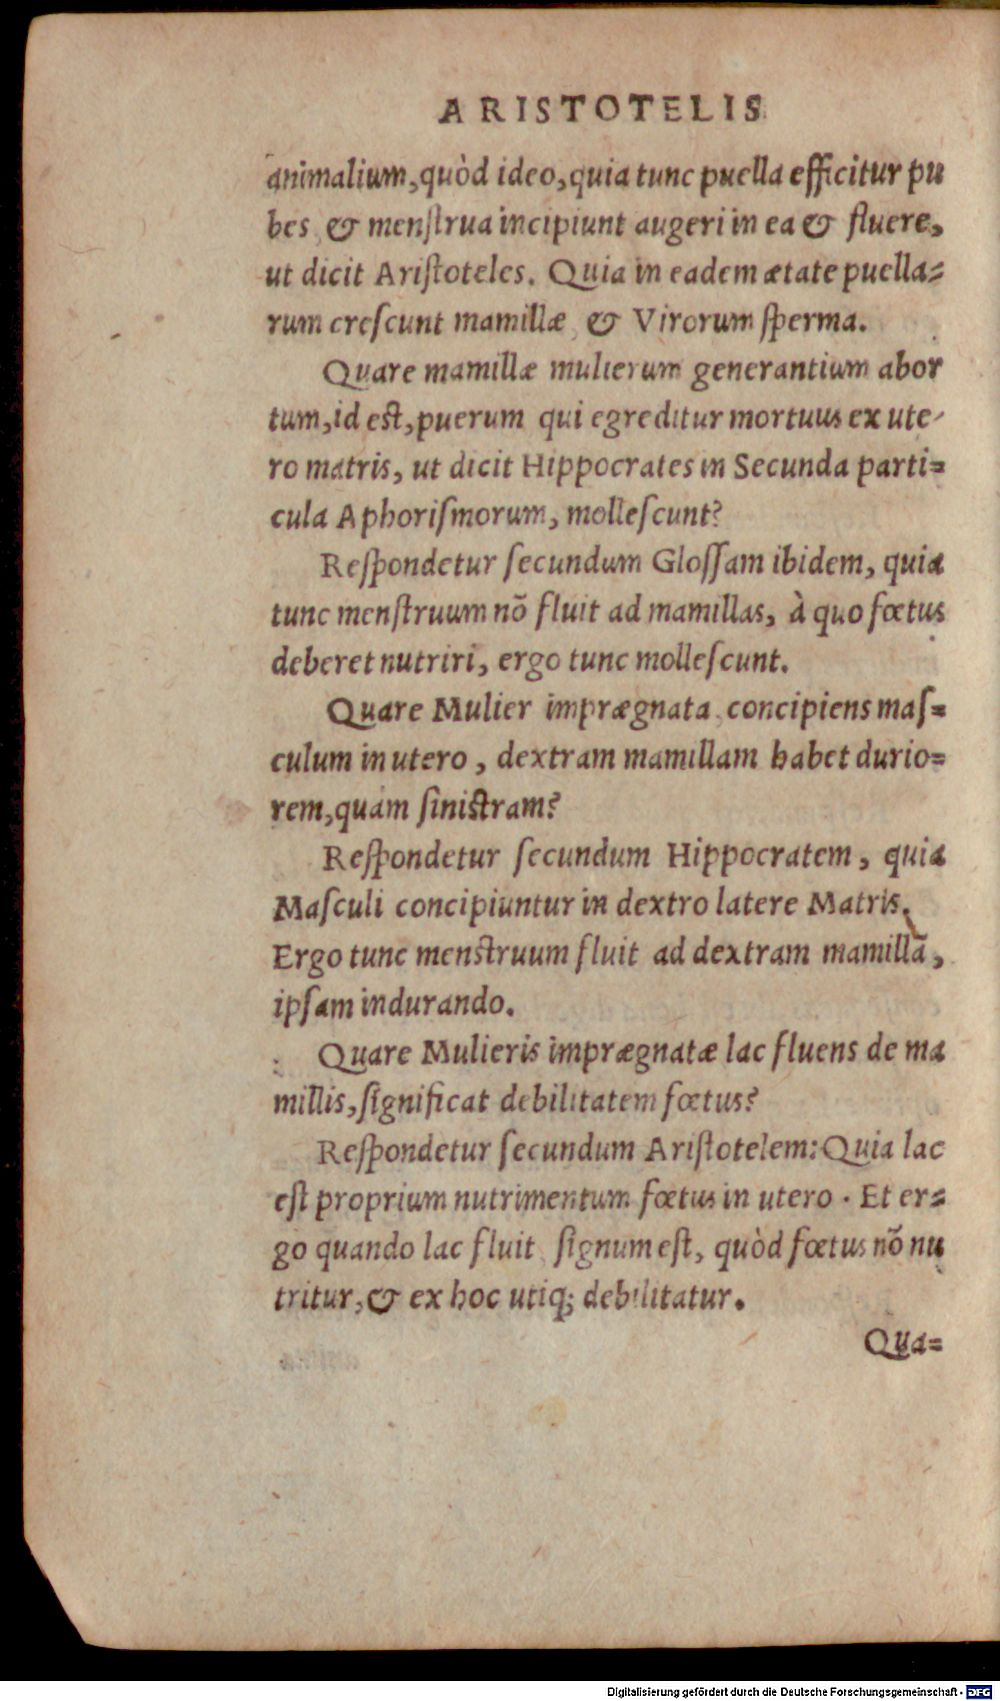 ARISTOTELIS
animalium, quòd ideo, quia tunc puella efficitur pu
bes & menſtrua incipiunt augeri in ea & fluere,
ut dicit Ariſtoteles. Quia in eadem ætate puella=
rum creſcunt mamillæ & Virorum ſperma.
Quare mamillæ mulierum generantium abor
tum, id eſt, puerum qui egreditur mortuus ex ute-
ro matris, ut dicit Hippocrates in Secunda parti=
cula Aphoriſmorum, molleſcunt?
Reſpondetur ſecundum Gloſſam ibidem, quia
tunc menſtruum nō fluit ad mamillas, à quo fœtus
deberet nutriri, ergo tunc molleſcunt.
Quare Mulier imprægnata concipiens maſ=
culum in utero, dextram mamillam habet durio=
rem, quàm ſiniſtram?
Reſpondetur ſecundum Hippocratem, quia
Maſculi concipiuntur in dextro latere Matris.
Ergo tunc menſtruum fluit ad dextram mamillā,
ipſam indurando.
Quare Mulieris imprægnatæ lac fluens de ma
millis, ſignificat debilitatem fœtus?
Reſpondetur ſecundum Ariſtotelem: Quia lac
eſt proprium nutrimentum fœtus in utero. Et er=
go quando lac fluit ſignum eſt, quòd fœtus nō nu
tritur, & ex hoc utiq; debilitatur.
Qua=
Digitalisierung gefördert durch die Deutsche Forschungsgemeinschaft - DFG